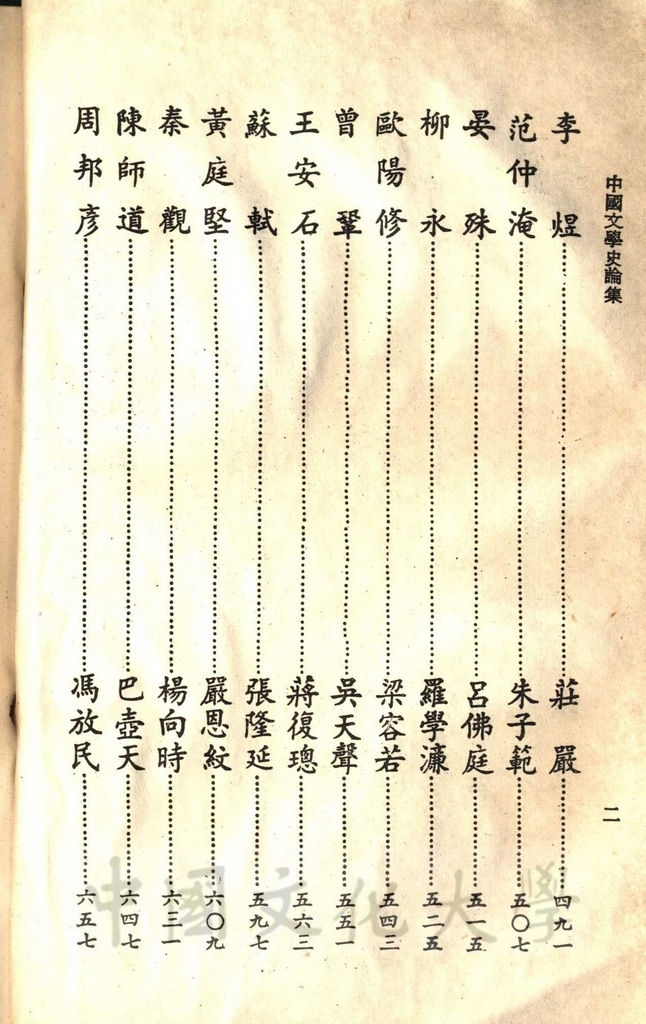 中國文學史論集
二
李煜 莊嚴 四九一
范仲淹 朱子範 五〇七
晏殊 呂佛庭 五一五
柳永 羅學濂 五二五
歐陽修 梁容若 五四三
曾鞏 吳天聲 五五一
王安石 蔣復璁 五六三
蘇軾 張隆延 五九七
黃庭堅 嚴恩紋 六〇九
秦觀 楊向時 六三一
陳師道 巴壺天 六四七
周邦彥 馮放民 六五七
中國文化大學